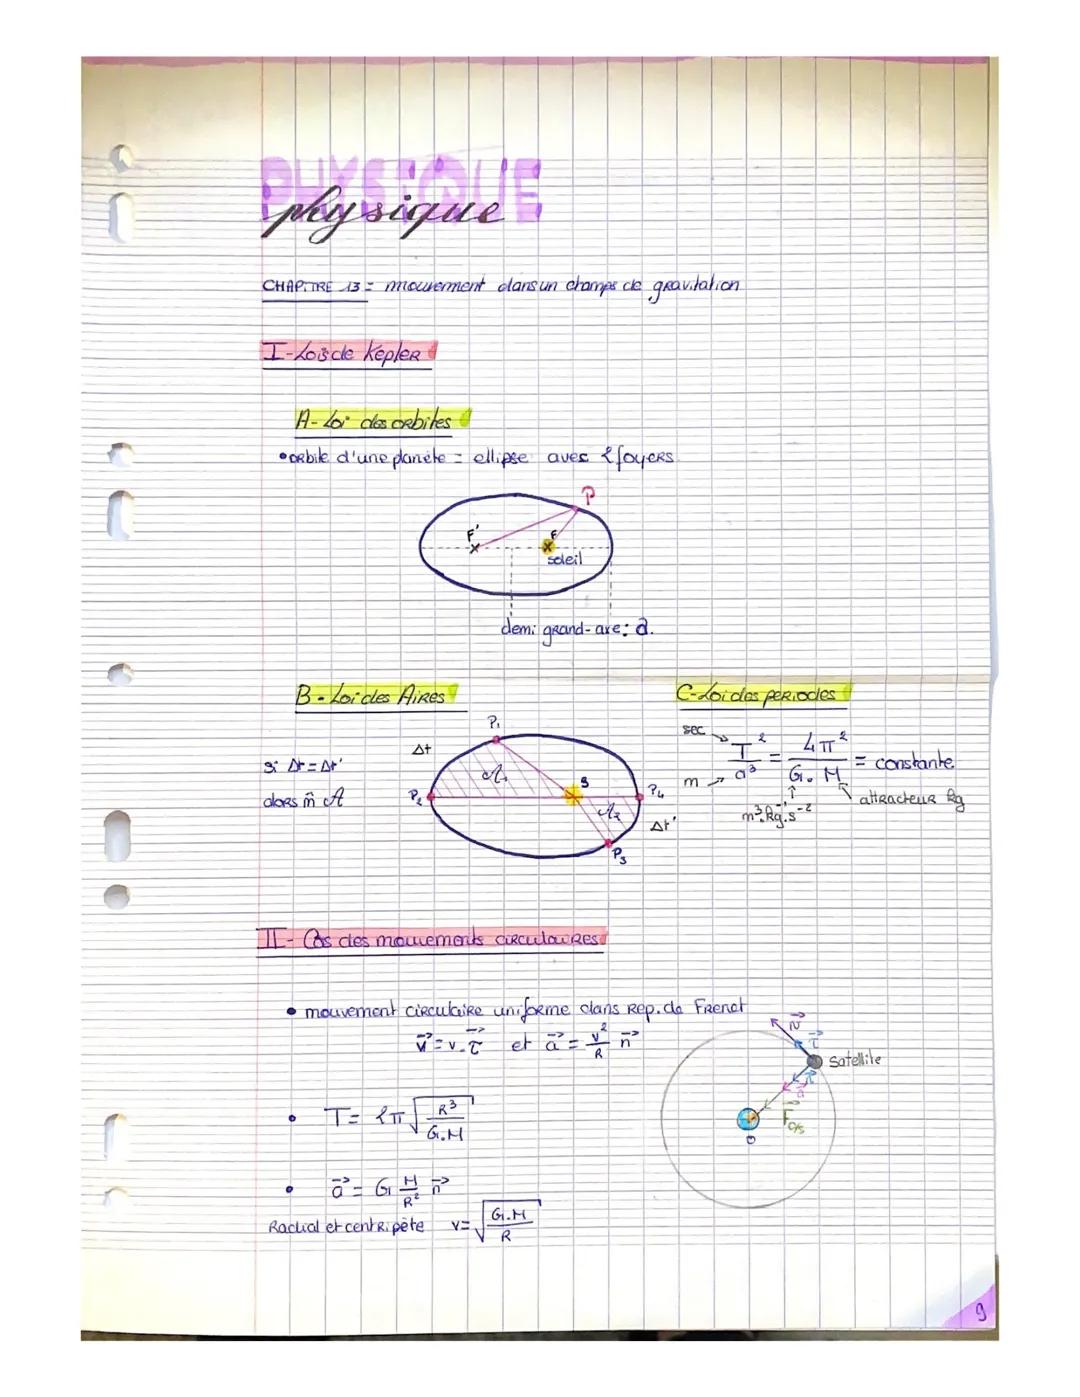 PHYSIQUE
physique
CHAPITRE 13 = mouvement dans un champs de gravitation
I - Lois de Kepler
A - Loi des orbites
• orbite d'une planète = ellipse avec 2 foyers
P
F'
F
soleil
demi grand-axe : a.
B - Loi des Aires
C - Loi des periodes
si Δt = Δt'
alors m̂ A
Δt
P₁
A₁
S
P₂
P₄
A₂
Δt'
P₃
sec → T²/a³ = 4π²/(G.M) = constante
m →
m³.kg⁻¹.s⁻²
attracteur kg
II - Cas des mouvements circulaires
• mouvement circulaire uniforme dans rep. de Frenet
v⃗ = v.τ⃗ et a⃗ = v²/R n⃗
v⃗
τ⃗
satellite
n⃗
a⃗
F⃗o/s
O
• T = 2π√(R³/(G.M))
• a⃗ = G M/R² n⃗
Radial et centripète v = √(G.M/R)
9